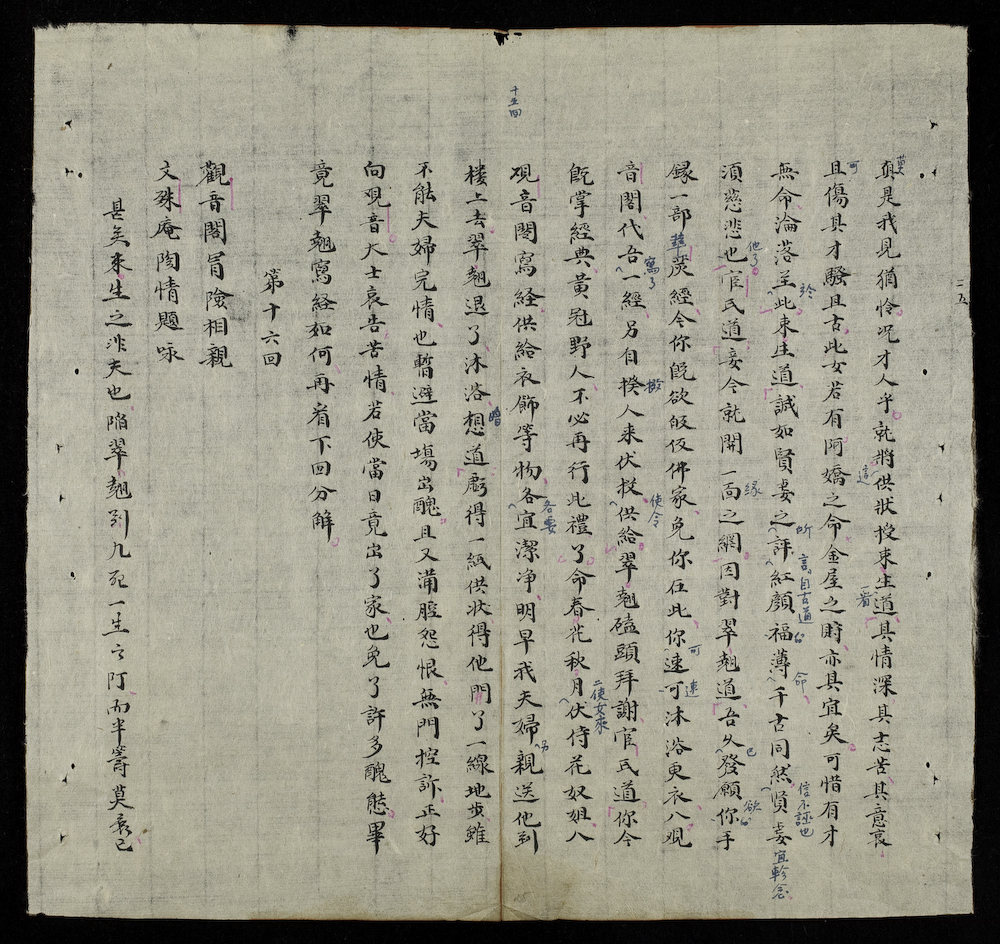 真是我見猶怜况才人乎就將供狀授束生道其情深其志苦其意哀
且傷具才騷且古此女若有阿嬌之命金屋之貯亦其宜矣可惜有才
無命淪落至此束生道誠如賢妻之評紅顏福薄千古同然賢妻宜軫念
須慈悲也宦氏道妾今就開一面之網因對翠翹道吾久發願你手
錄一部華嚴經今你旣欲皈依佛家免你在此你速可沐浴更衣入觀
音閣代吾一經另自撥人来伏投供給翠翹磕頭拜謝宦氏道你今
旣掌經典黃冠野人不必再行此禮了命春花秋月伏侍花奴姐入
观音閣寫経供給衣飾等物各宜潔净明早我夫婦親送他到
楼上去翠翹退了沐浴想道虧得一紙供状得他開了一線地步雖
不能夫婦完情也暫避當塲出醜且又滿腔怨恨無門控訴正好
向观音大士哀告苦情若使當日竟出了家也免了許多醜態畢
竟翠翹寫経如何再看下回分解
第十六回
觀音閣冒險相親
文殊庵陶情題咏
甚矣束生之非夫也陷翠翹到九死一生之門而半籌莫展已
十五回
二五
莫
可
這
看
於
所
言自古道
命
信不誣也
他了
緣
已
欲
可
速
寫了
撥
使令
二使女來
另
各要
暗